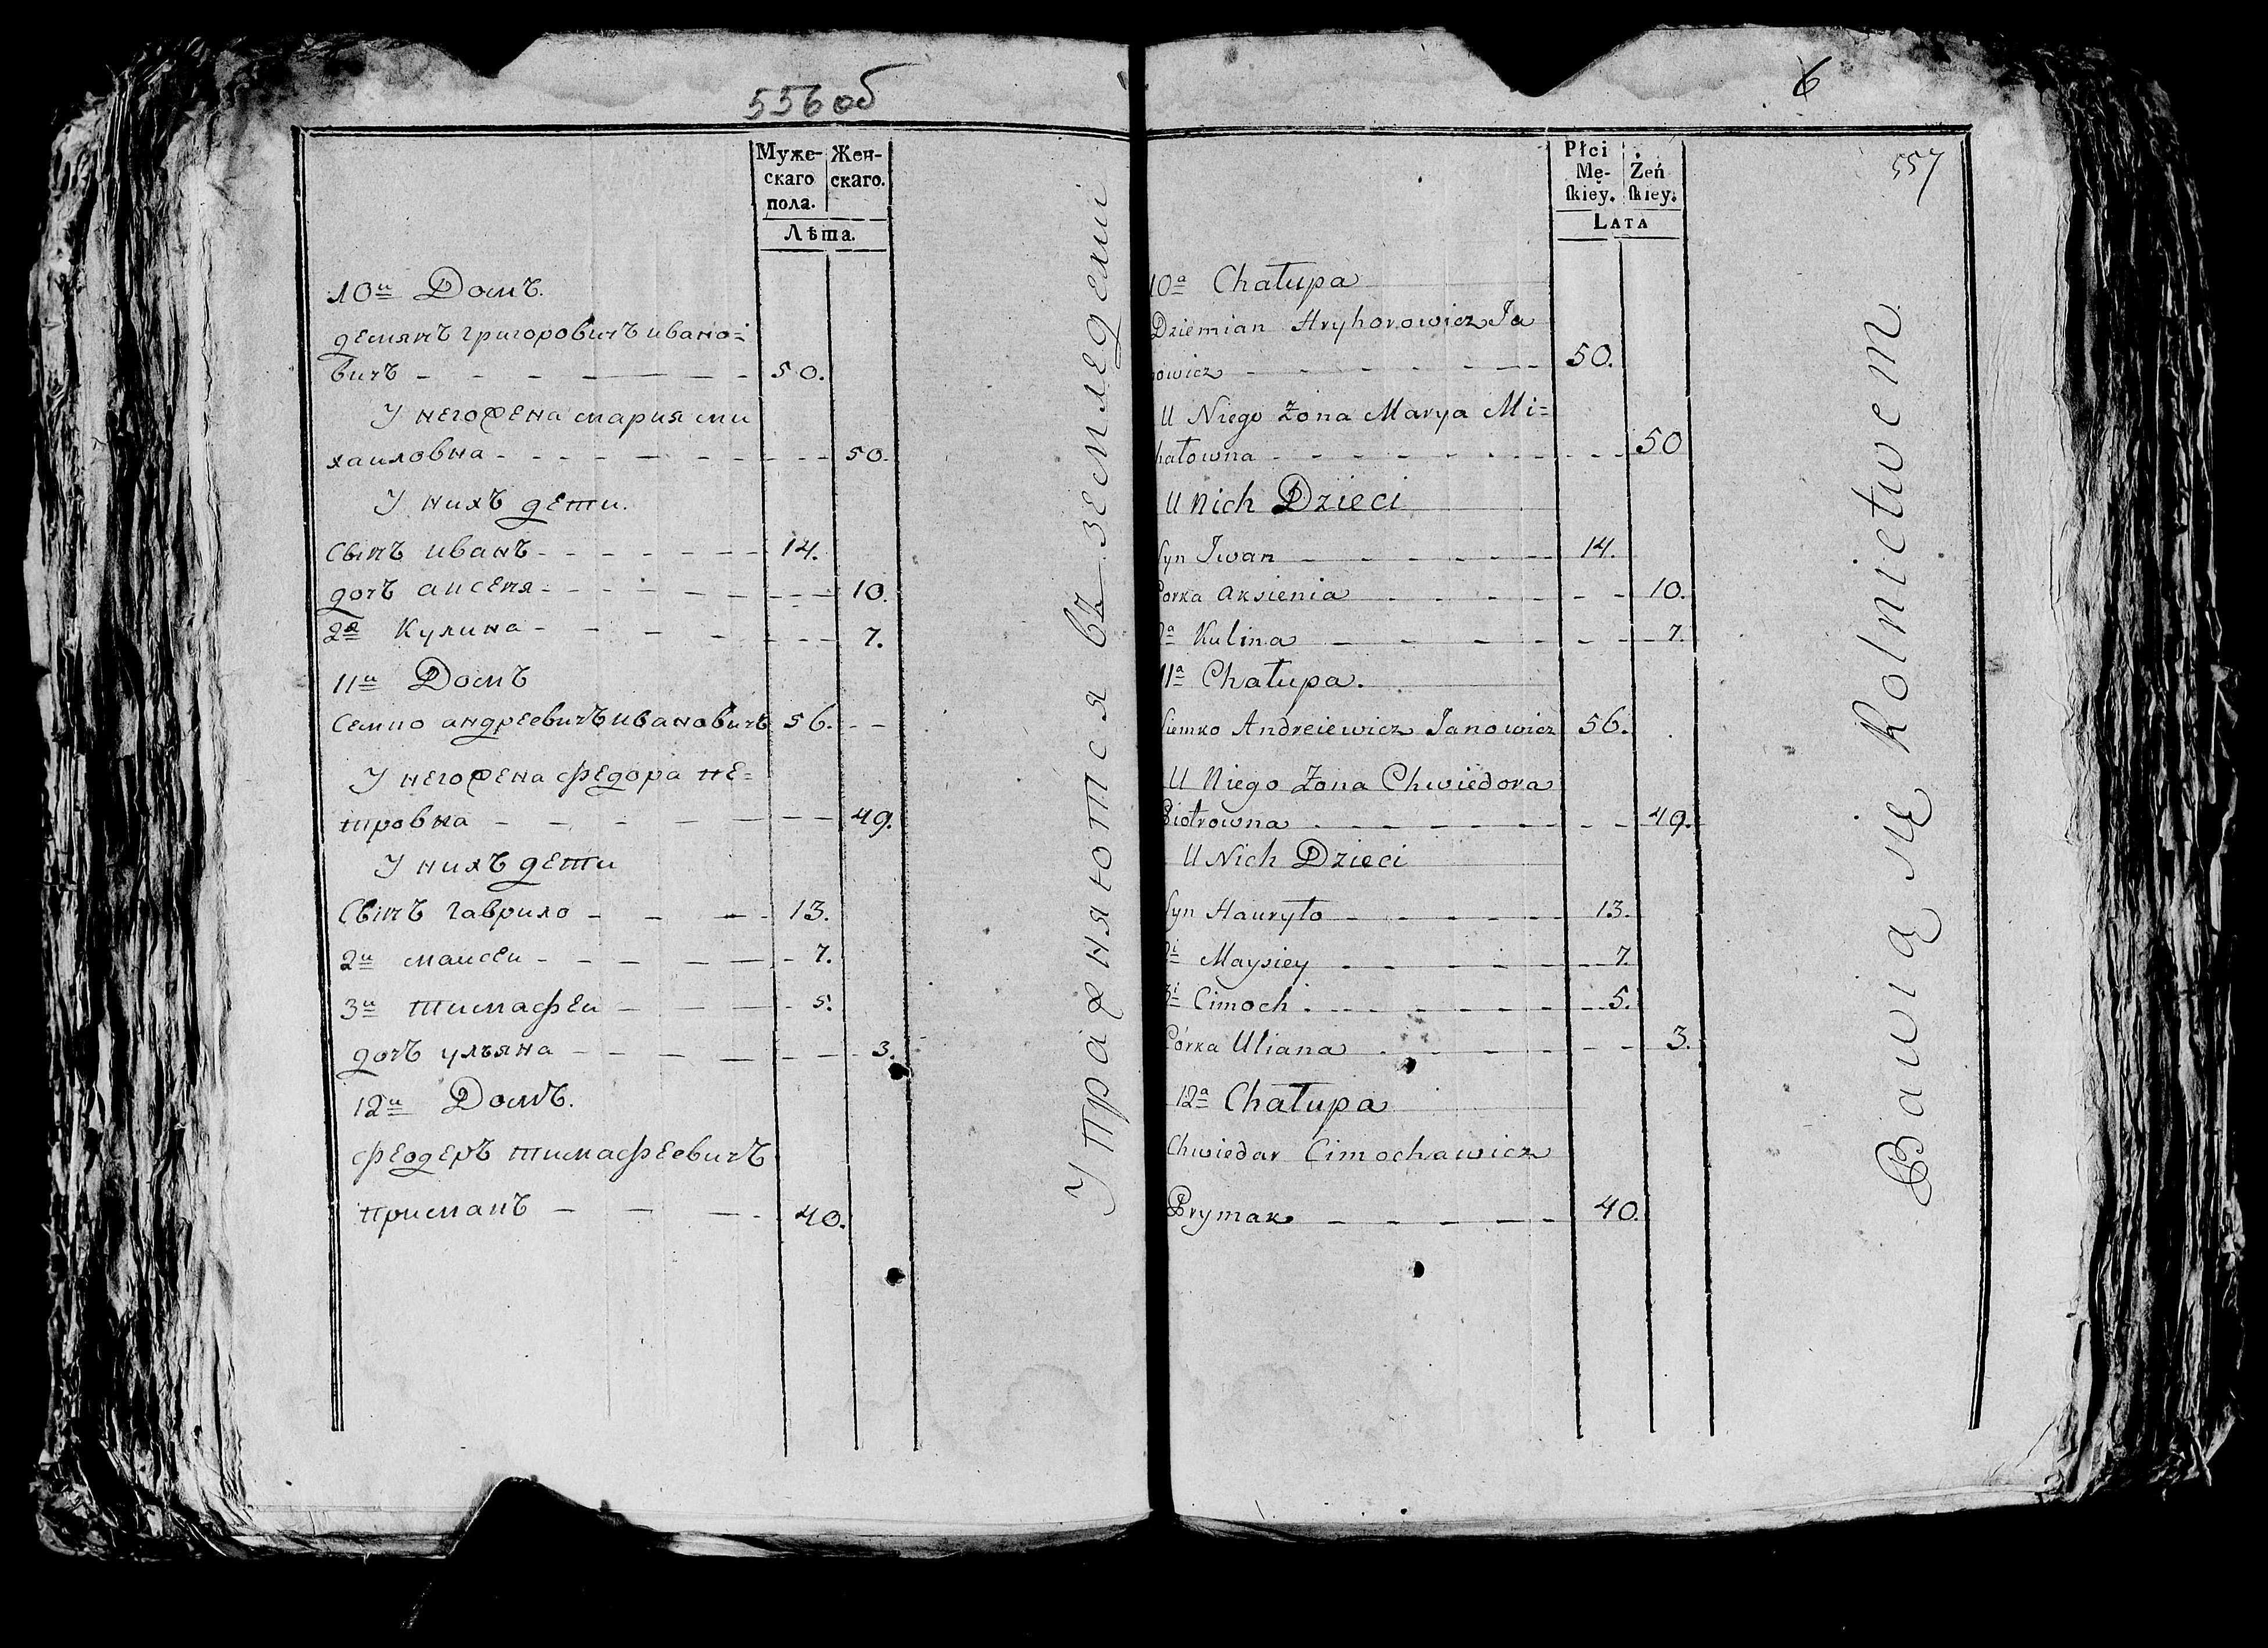 556 об
Муже-
скаго
пола.
Жен-
скаго.
Лѣта.
10й Домъ.
демянъ григоровичъ ивано=
вичъ 50.
У него жена мария ми
хаиловна 50.
У нихъ дети.
Сынъ иванъ 14.
дочь аксеня 10.
2я Кулина 7.
11й Домъ
Семко андреевичъ ивановичъ 56.
У него жена федора пе=
тровна 49.
У нихъ дети
Сынъ гаврило 13.
2й маисеи 7.
3й тимафеи 5.
дочь ульяна 3.
12й Домъ.
феодеръ тимафеевичъ
примакъ 40.
Упражняются въ земледелии
6
557
Płci
Mę-
ſkiey.
Żeń
ſkiey.
LATA
10a Chałupa
Dziemian Hryhorowicz Ja
nowicz 50.
U Niego Żona Marya Mi=
hałowna 50
U Nich Dzieci
Syn Iwan 14.
Corka Aksienia 10.
2a Kulina 7.
11a Chałupa.
Siemko Andreiewicz Janowicz 56.
U Niego Żona Chwiedora
Piotrowna 49.
U Nich Dzieci
Syn Hauryło 13.
2i Maysiey 7.
3i Cimoch 5.
Córka Uliana 3.
12a Chałupa
Chwiedar Cimochawicz
Prymak 40.
Bawią się Rolnictwem